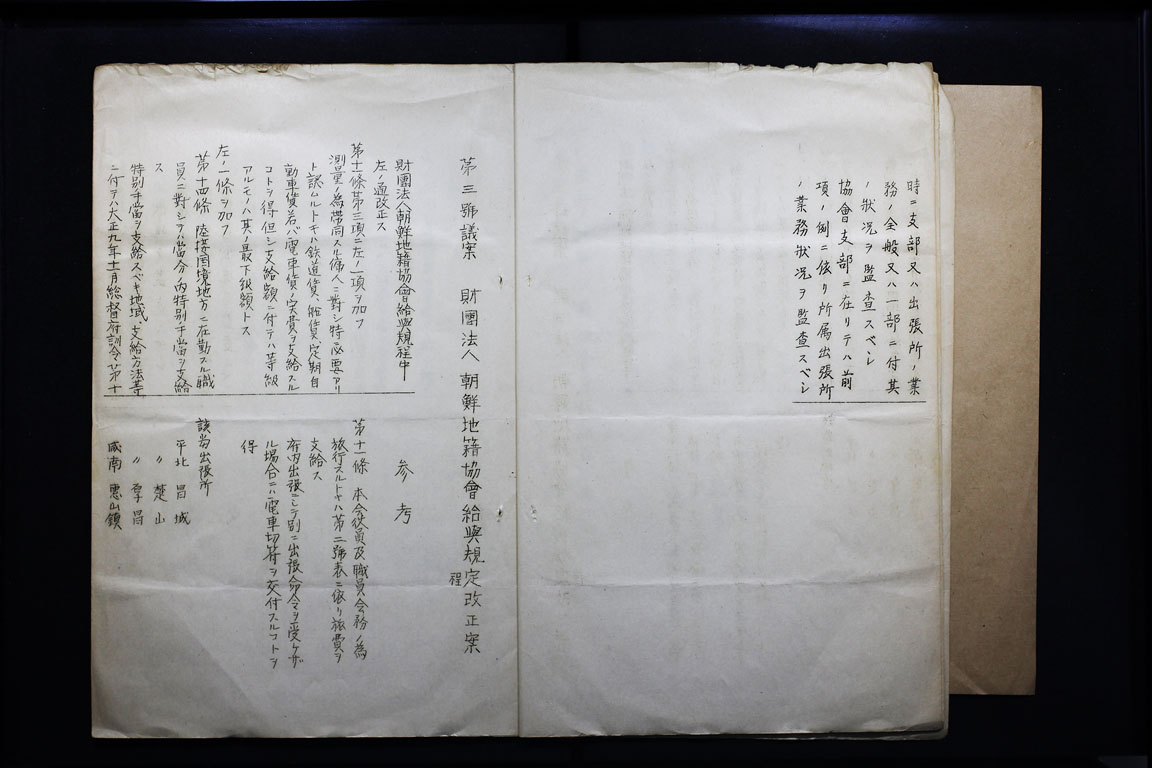 時ニ支部又ハ出張所ノ業
務ノ全般又ハ一部ニ付其
ノ狀況ヲ監査スベシ
協會支部ニ在リテハ前
項ノ例ニ依リ所属出張所
ノ業務狀況ヲ監査スベシ
第三號議案 財團法人朝鮮地籍協會給與規定改正案
程
財團法人朝鮮地籍協會給與規程中
左ノ通改正ス
第十一條第三項ニ左ノ一項ヲ加フ
測量ノ為帶同スル傭人ニ對シ特ニ必要アリ
ト認ムルトキハ鉄道賃、船賃、定期自
動車賃若ハ電車賃ノ実費ヲ支給スル
コトヲ得但シ支給額ニ付テハ等級
アルモノハ其ノ最下級額トス
左ノ一條ヲ加フ
第十四條 陸接国境地方ニ在勤スル職
員ニ對シテハ當分ノ内特別手當ヲ支給
ス
特別手當ヲ支給スベキ地域、支給方法等
ニ付テハ大正九年十一月総督府訓令第十
参考
第十一條 本会役員及職員会務ノ為
旅行スルトキハ第二號表ニ依リ旅費ヲ
支給ス
府内出張ニシテ別ニ出張命令ヲ受ケザ
ル場合ニハ電車切符ヲ交付スルコトヲ
得
該当出張所
平北 昌城
〃 楚山
〃 厚昌
咸南 惠山鎮